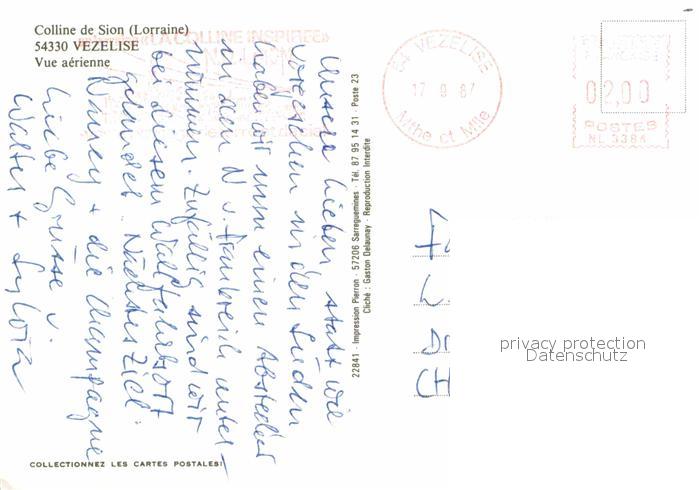 Colline de Sion (Lorraine)
54330 VEZELISE
Vue aérienne
«LA COLLINE INSPIREE»
54 VEZELISE
17 9 87
Mthe et Mlle
02,00
POSTES
NL 3384
Unsere Lieben statt wie
vorgesehen in den Süden
haben wir nun einen Abstecher
in den N v. Frankreich unter-
nommen. Zufällig sind wir
bei diesem Wallfahrtsort
gelandet. Nächstes Ziel:
Nancy + die Champagne
Liebe Grüsse v.
Walter + Sylvia
22841 - Impression Pierron - 57206 Sarreguemines - Tél. 87 95 14 31 - Poste 23
Cliché : Gaston Delaunay - Reproduction Interdite
privacy protection
Datenschutz
COLLECTIONNEZ LES CARTES POSTALES!